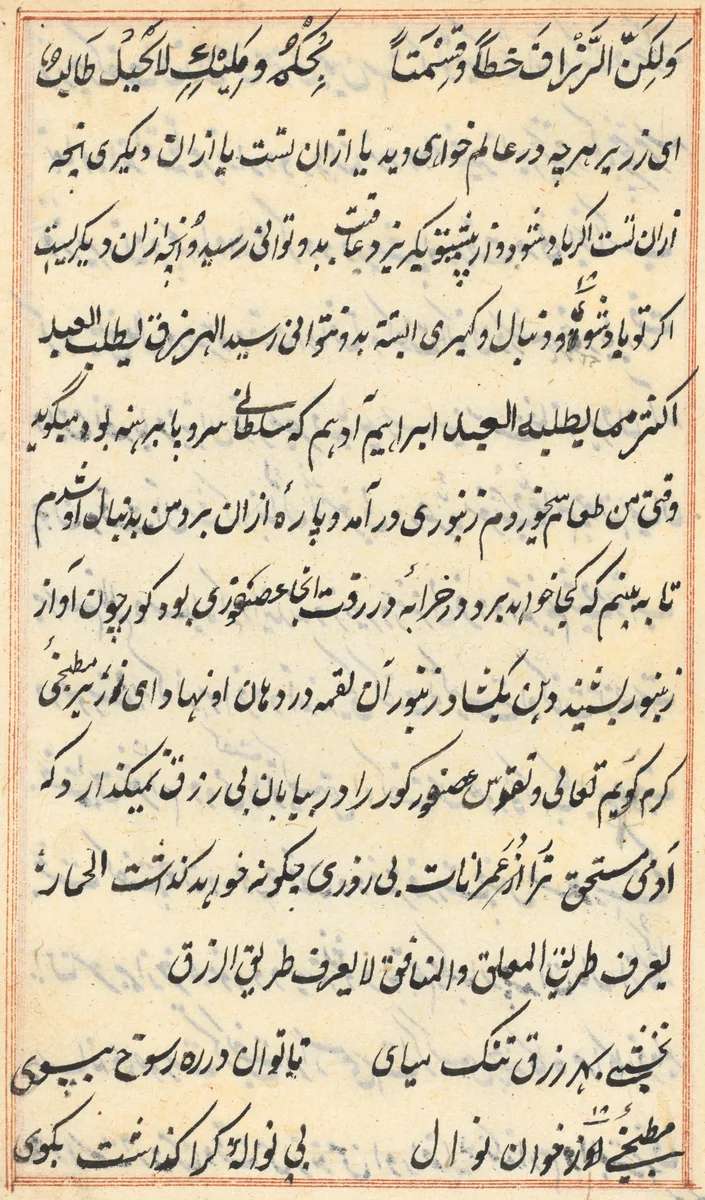 وَلكِنَّ الرِّزْاقَ خطاً وَقِسْمَتاً بِحُكْمِ وَمَلِيْكٍ لا يَحْيلُ طَالِبُ
ای زریر هرچه در عالم خواهی دید یا ازان تست یا ازان دیگری انچه
ازان تست اکر باد شود و از پیشتو بکریزد عاقبت بدو توانی رسید و انچه ازان دیکریست
اکر تو باد شوی و دنبال او کیری البتة بدو نتوانی رسید الرزق لیطلب العبد
اکثر مما یطلبه العبد ابراهیم آدهم که سلطانی سر و پا برهنه بود میگوید
وقتی من طعام میخوردم زنبوری درآمد و پارهٔ ازان برد من بدنبال او شدم
تا به بینم که کجا خواهد برد در خرابهٔ در رفت انجا عصفوری بود کور چون آواز
زنبور بشنید دهن بکشاد زنبور آن لقمه در دهان او نهاد ای زریر مطبخیٔ
کرم کویم تعالی و تقدس عصفور کور را در بیابان بی رزق نمیکذارد که
آدمی مستحق ترا از عمرانات بی روزی چکونه خواهد کذاشت الحمار
یعرف طریق المعلق والمنافق لا یعرف طریق الرزق
نخشبی بهر رزق تنک میای تا توان در ره رسوخ بپوی
مطبخیٔ از خوان نوال بی نوالهٔ کرا کذاشت بکوی